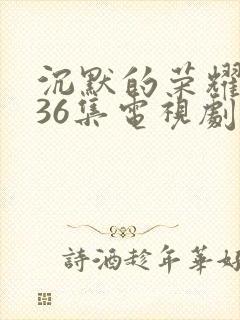 沉默的荣耀
36集電視劇
詩酒趁年華好